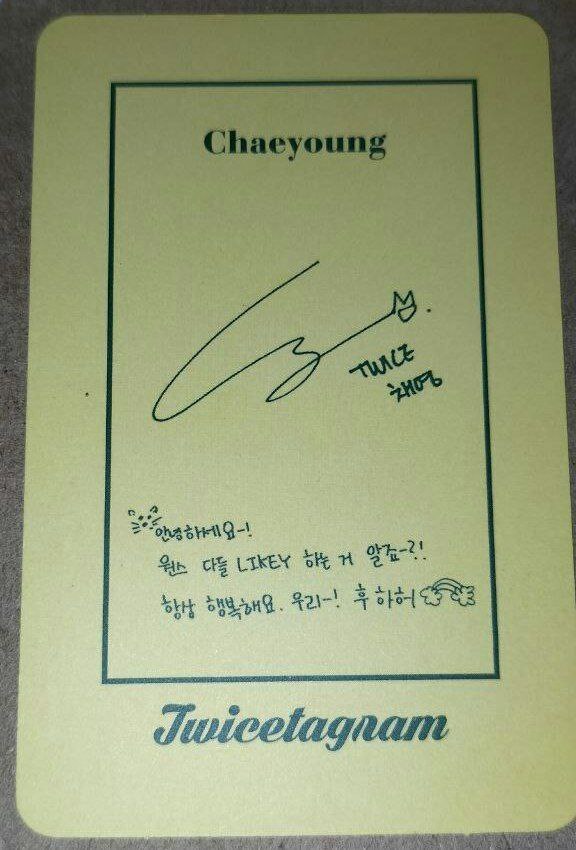 Chaeyoung
TWICE
채영
안녕하세요~!
원스 다들 LIKEY 하는 거 알죠~?!
항상 행복해요. 우리~! 후하허
Twicetagram